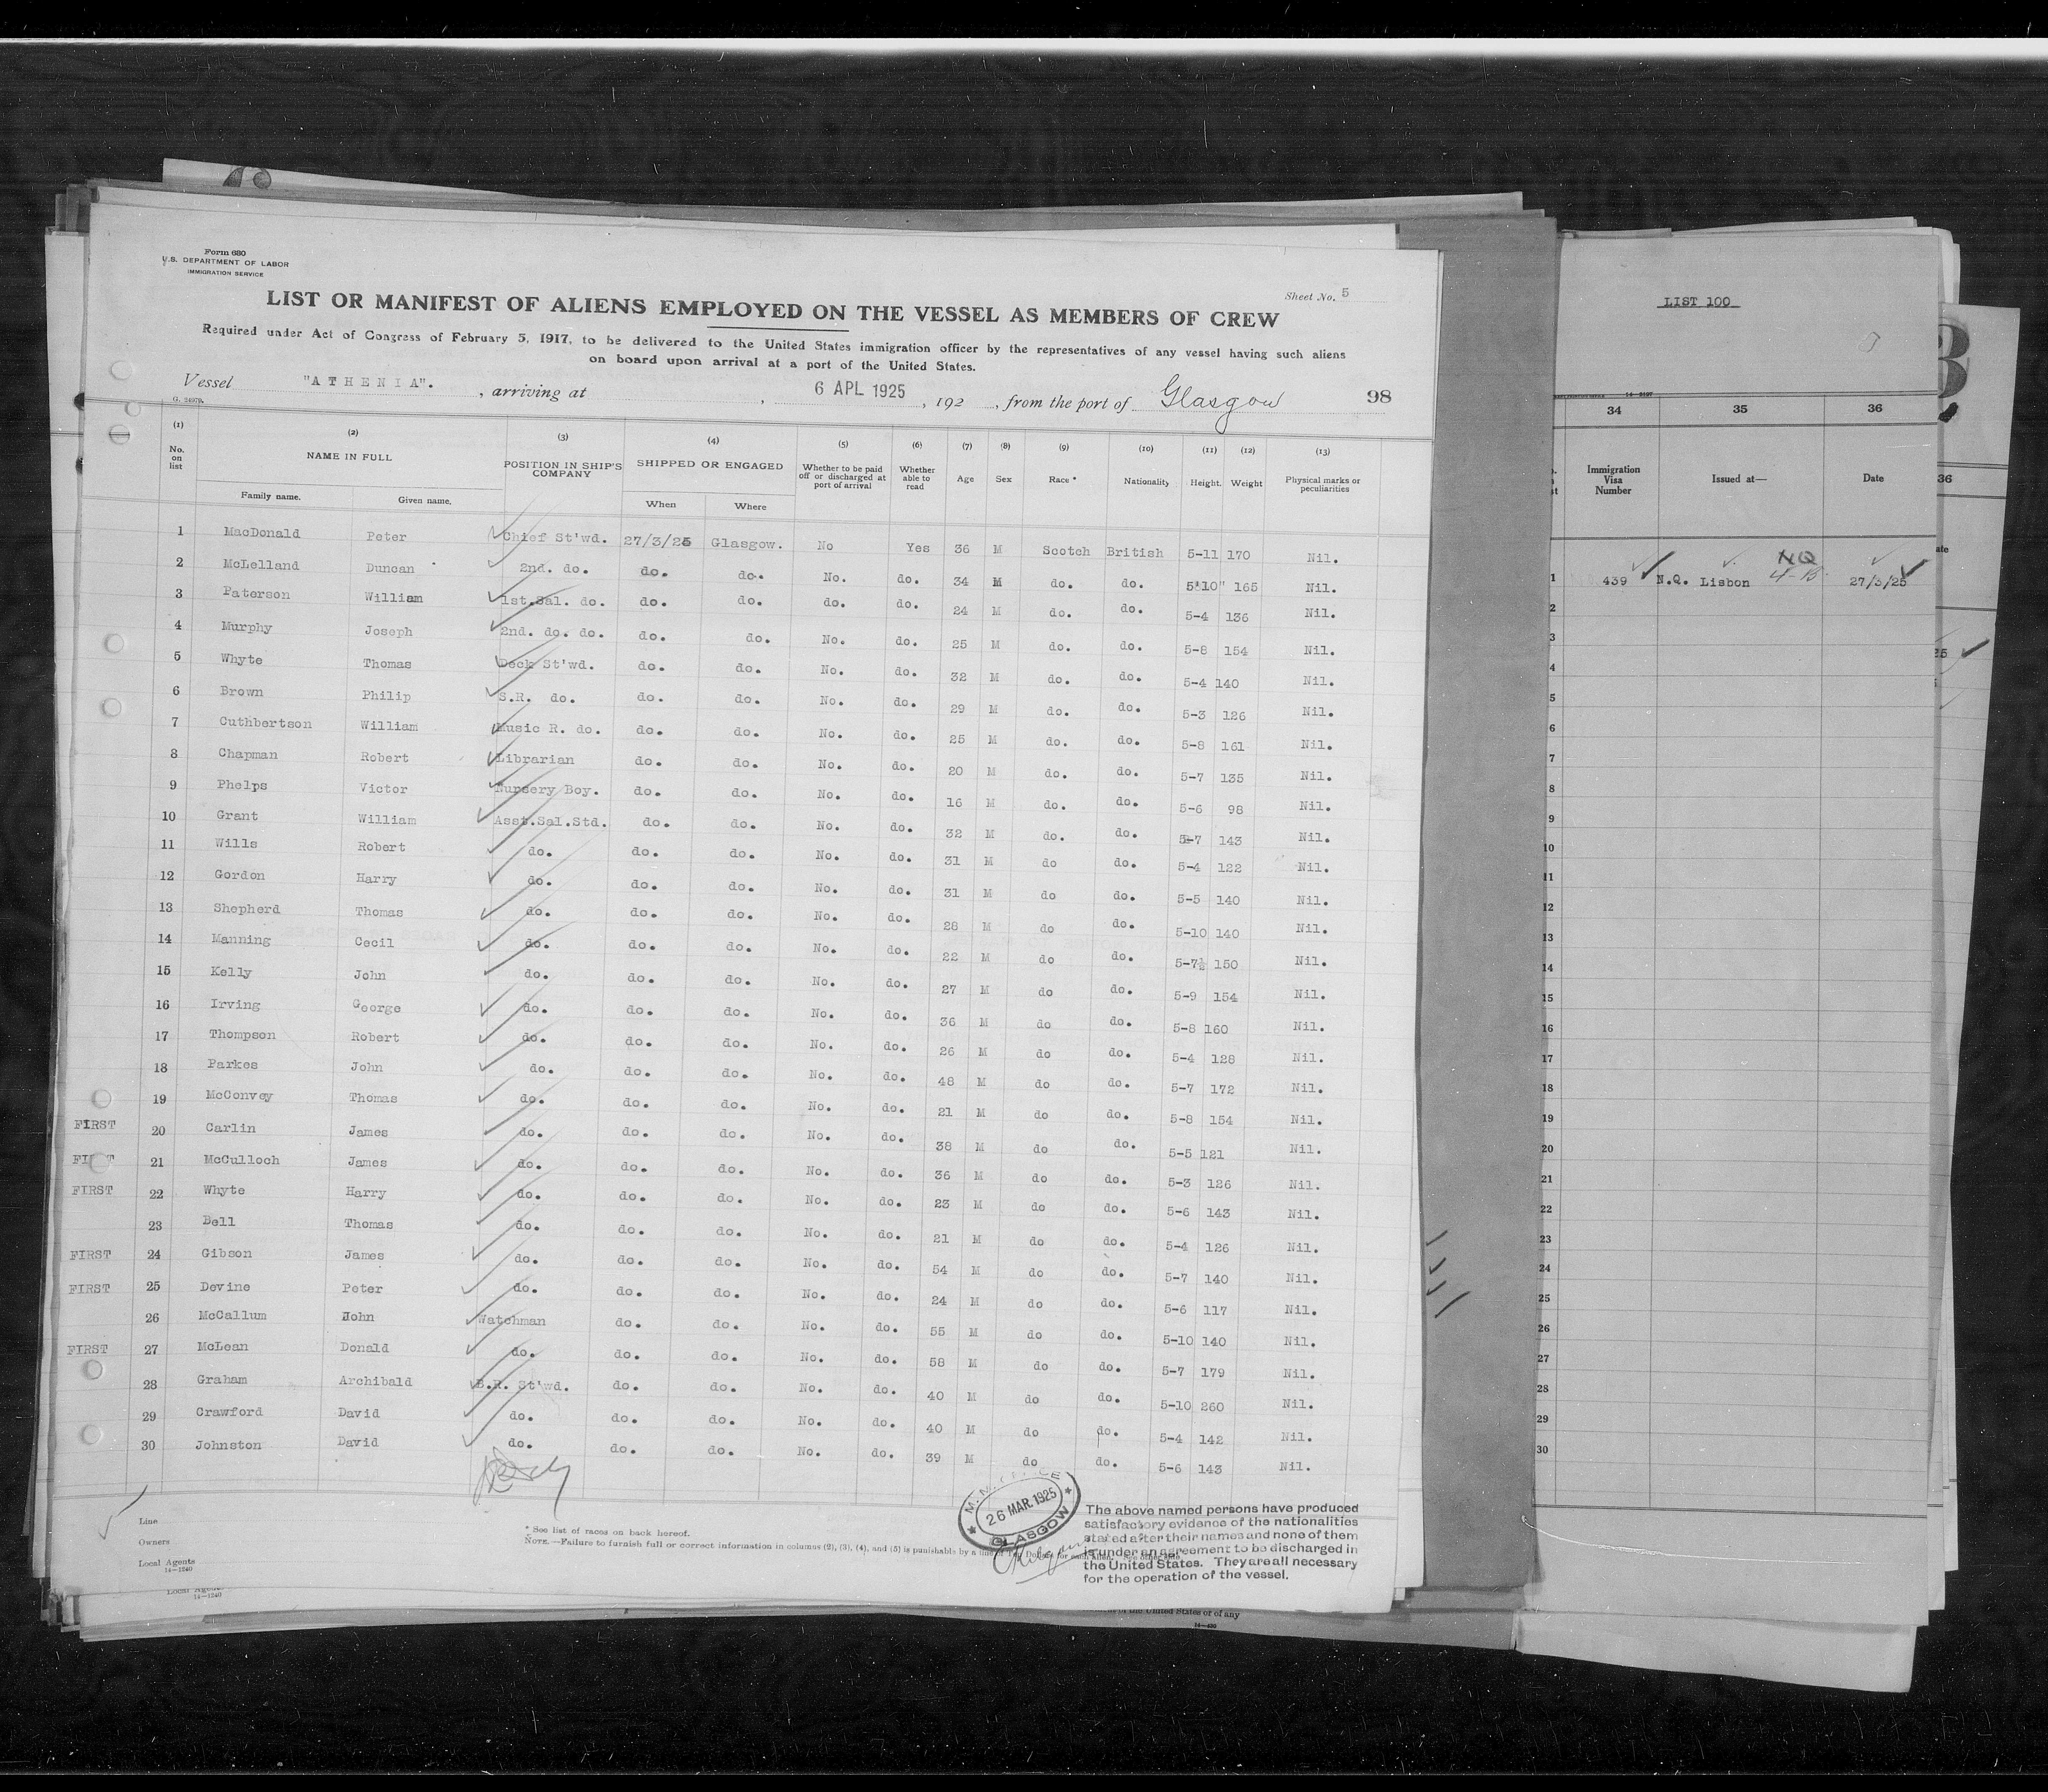 Form 680
U.S. DEPARTMENT OF LABOR
IMMIGRATION SERVICE
Sheet No. 5
LIST OR MANIFEST OF ALIENS EMPLOYED ON THE VESSEL AS MEMBERS OF CREW
Required under Act of Congress of February 5, 1917, to be delivered to the United States immigration officer by the representatives of any vessel having such aliens
on board upon arrival at a port of the United States.
Vessel "ATHENIA". , arriving at , 6 APL 1925 , 192 , from the port of Glasgow 98
G. 24979.
(1) (2) (3) (4) (5) (6) (7) (8) (9) (10) (11) (12) (13)
No. on list NAME IN FULL Family name. Given name. POSITION IN SHIP'S COMPANY SHIPPED OR ENGAGED When Where Whether to be paid off or discharged at port of arrival Whether able to read Age Sex Race * Nationality Height. Weight Physical marks or peculiarities
1 MacDonald Peter Chief St'wd. 27/3/25 Glasgow. No Yes 36 M Scotch British 5-11 170 Nil.
2 McLelland Duncan 2nd. do. do. do. No. do. 34 M do. do. 5'10" 165 Nil.
3 Paterson William 1st.Sal. do. do. do. do. do. 24 M do. do. 5-4 136 Nil.
4 Murphy Joseph 2nd. do. do. do. do. No. do. 25 M do. do. 5-8 154 Nil.
5 Whyte Thomas Deck St'wd. do. do. No. do. 32 M do. do. 5-4 140 Nil.
6 Brown Philip S.R. do. do. do. No. do. 29 M do. do. 5-3 126 Nil.
7 Cuthbertson William Music R. do. do. do. No. do. 25 M do. do. 5-8 161 Nil.
8 Chapman Robert Librarian do. do. No. do. 20 M do. do. 5-7 135 Nil.
9 Phelps Victor Nursery Boy. do. do. No. do. 16 M do. do. 5-6 98 Nil.
10 Grant William Asst.Sal.Std. do. do. No. do. 32 M do. do. 5-7 143 Nil.
11 Wills Robert do. do. do. No. do. 31 M do do. 5-4 122 Nil.
12 Gordon Harry do. do. do. No. do. 31 M do do. 5-5 140 Nil.
13 Shepherd Thomas do. do. do. No. do. 28 M do do. 5-10 140 Nil.
14 Manning Cecil do. do. do. No. do. 22 M do do. 5-7½ 150 Nil.
15 Kelly John do. do. do. No. do. 27 M do do. 5-9 154 Nil.
16 Irving George do. do. do. No. do. 36 M do do. 5-8 160 Nil.
17 Thompson Robert do. do. do. No. do. 26 M do do. 5-4 128 Nil.
18 Parkes John do. do. do. No. do. 48 M do do. 5-7 172 Nil.
19 McConvey Thomas do. do. do. No. do. 21 M do do. 5-8 154 Nil.
FIRST 20 Carlin James do. do. do. No. do. 38 M do do. 5-5 121 Nil.
21 McCulloch James do. do. do. No. do. 36 M do do. 5-3 126 Nil.
FIRST 22 Whyte Harry do. do. do. No. do. 23 M do do. 5-6 143 Nil.
23 Bell Thomas do. do. do. No. do. 21 M do do. 5-4 126 Nil.
FIRST 24 Gibson James do. do. do. No. do. 54 M do do. 5-7 140 Nil.
FIRST 25 Devine Peter do. do. do. No. do. 24 M do do. 5-6 117 Nil.
26 McCallum John Watchman do. do. No. do. 55 M do do. 5-10 140 Nil.
FIRST 27 McLean Donald do. do. do. No. do. 58 M do do. 5-7 179 Nil.
28 Graham Archibald B.R. St'wd. do. do. No. do. 40 M do do. 5-10 260 Nil.
29 Crawford David do. do. do. No. do. 40 M do do. 5-4 142 Nil.
30 Johnston David do. do. do. No. do. 39 M do do. 5-6 143 Nil.
Line
Owners
Local Agents
14—1240
* See list of races on back hereof.
NOTE.—Failure to furnish full or correct information in columns (2), (3), (4), and (5) is punishable by a fine of Ten Dollars for each alien. See other side
26 MAR. 1925
GLASGOW
The above named persons have produced
satisfactory evidence of the nationalities
stated after their names and none of them
is under an agreement to be discharged in
the United States. They are all necessary
for the operation of the vessel.
Local Agents
14—1240
of the United States or of any
14—430
LIST 100
34 35 36
Immigration Visa Number Issued at— Date
1 439 N.Q. Lisbon NQ 27/3/25
2
3
4
5
6
7
8
9
10
11
12
13
14
15
16
17
18
19
20
21
22
23
24
25
26
27
28
29
30
36